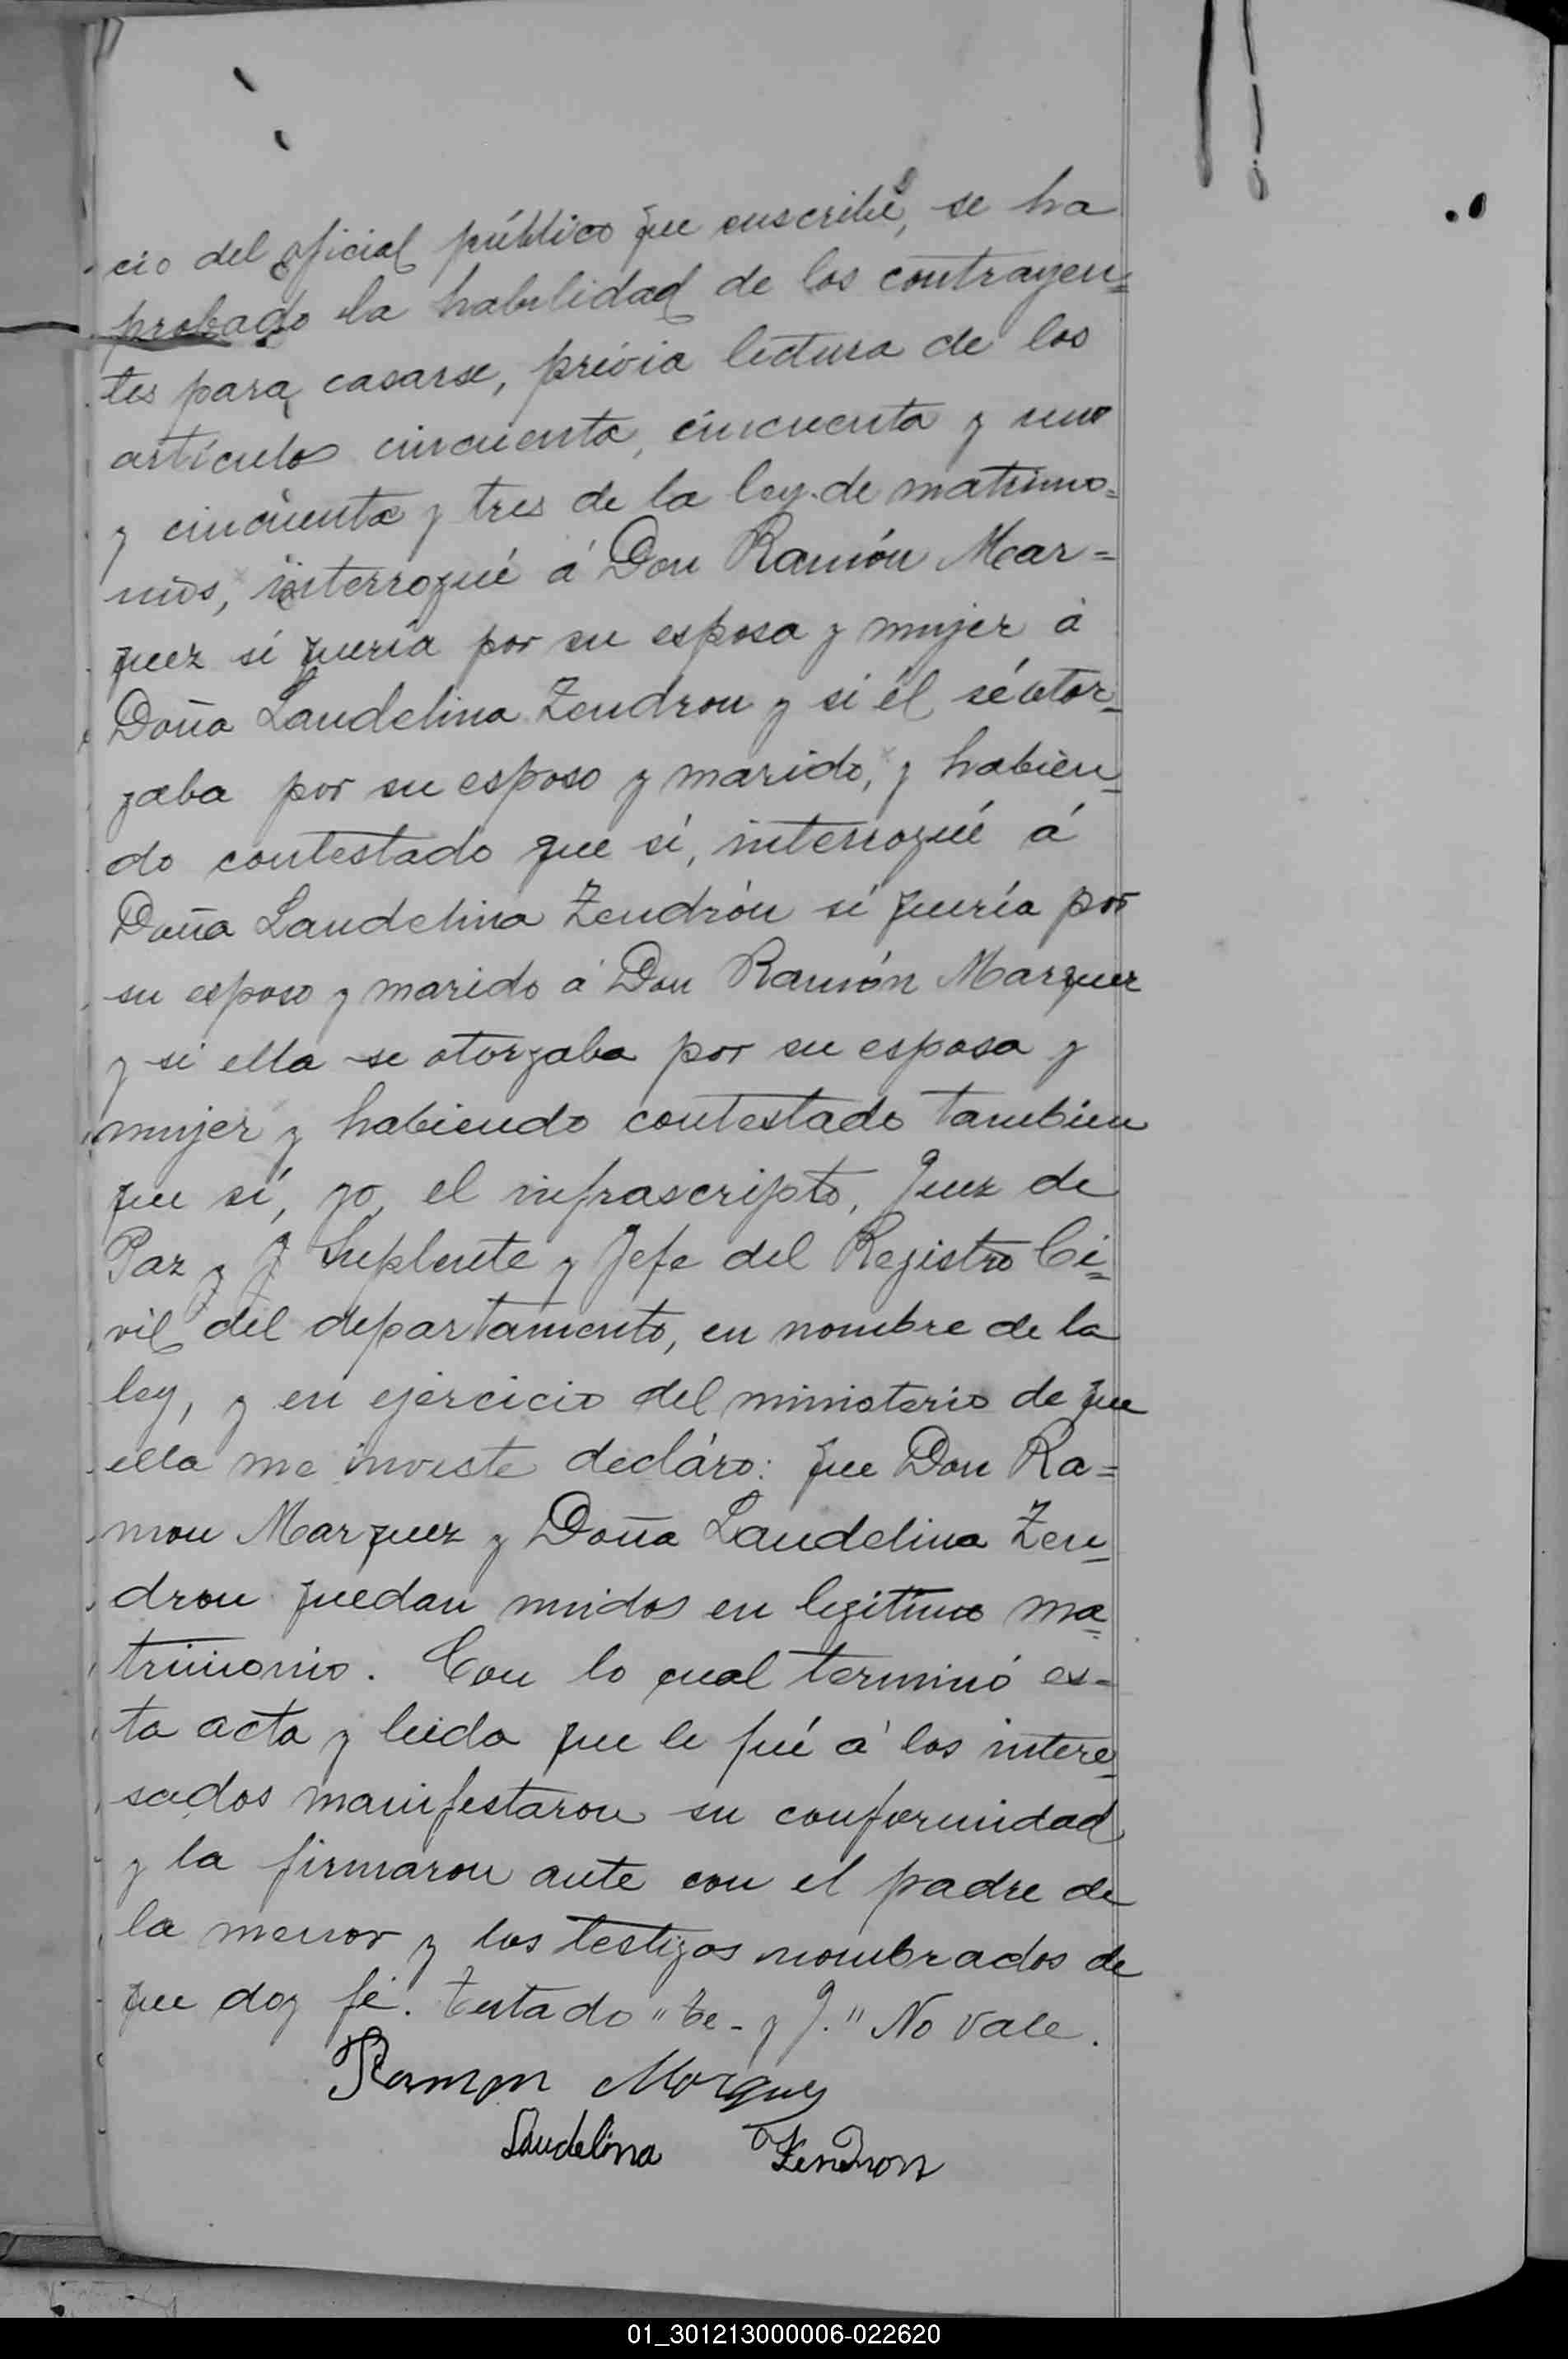 cio del oficial público que suscribe, se ha
probado la habilidad de los contrayen=
tes para casarse, prévia lectura de los
artículos cincuenta, cincuenta y uno
y cincuenta y tres de la ley de matrimo=
nios, interrogué á Don Ramón Mar=
quez si quería por su esposa y mujer á
Doña Laudelina Zendron y si él sé otor_
gaba por su esposo y marido, y habién_
do contestado que sí, interrogué á
Doña Laudelina Zendrón si quería por
su esposo y marido á Don Ramón Marquez
y si ella se otorgaba por su esposa y
mujer y habiendo contestado tambien
que sí, yo, el infrascripto, Juez de
Paz y J Suplente y Jefe del Registro Ci=
vil del departamento, en nombre de la
ley, y en ejercicio del ministerio de que
ella me inviste decláro: que Don Ra=
mon Marquez y Doña Laudelina Zen_
dron quedan unidos en legítimo ma=
trimonio. Con lo cual terminó es=
ta acta y leida que le fué á los intere_
sados manifestaron su conformidad
y la firmaron ante con el padre de
la menor y los testigos nombrados de
que doy fé. Testado "te- y J." No vale.
Ramon Marquez
Laudelina Zendron
01_301213000006-022620